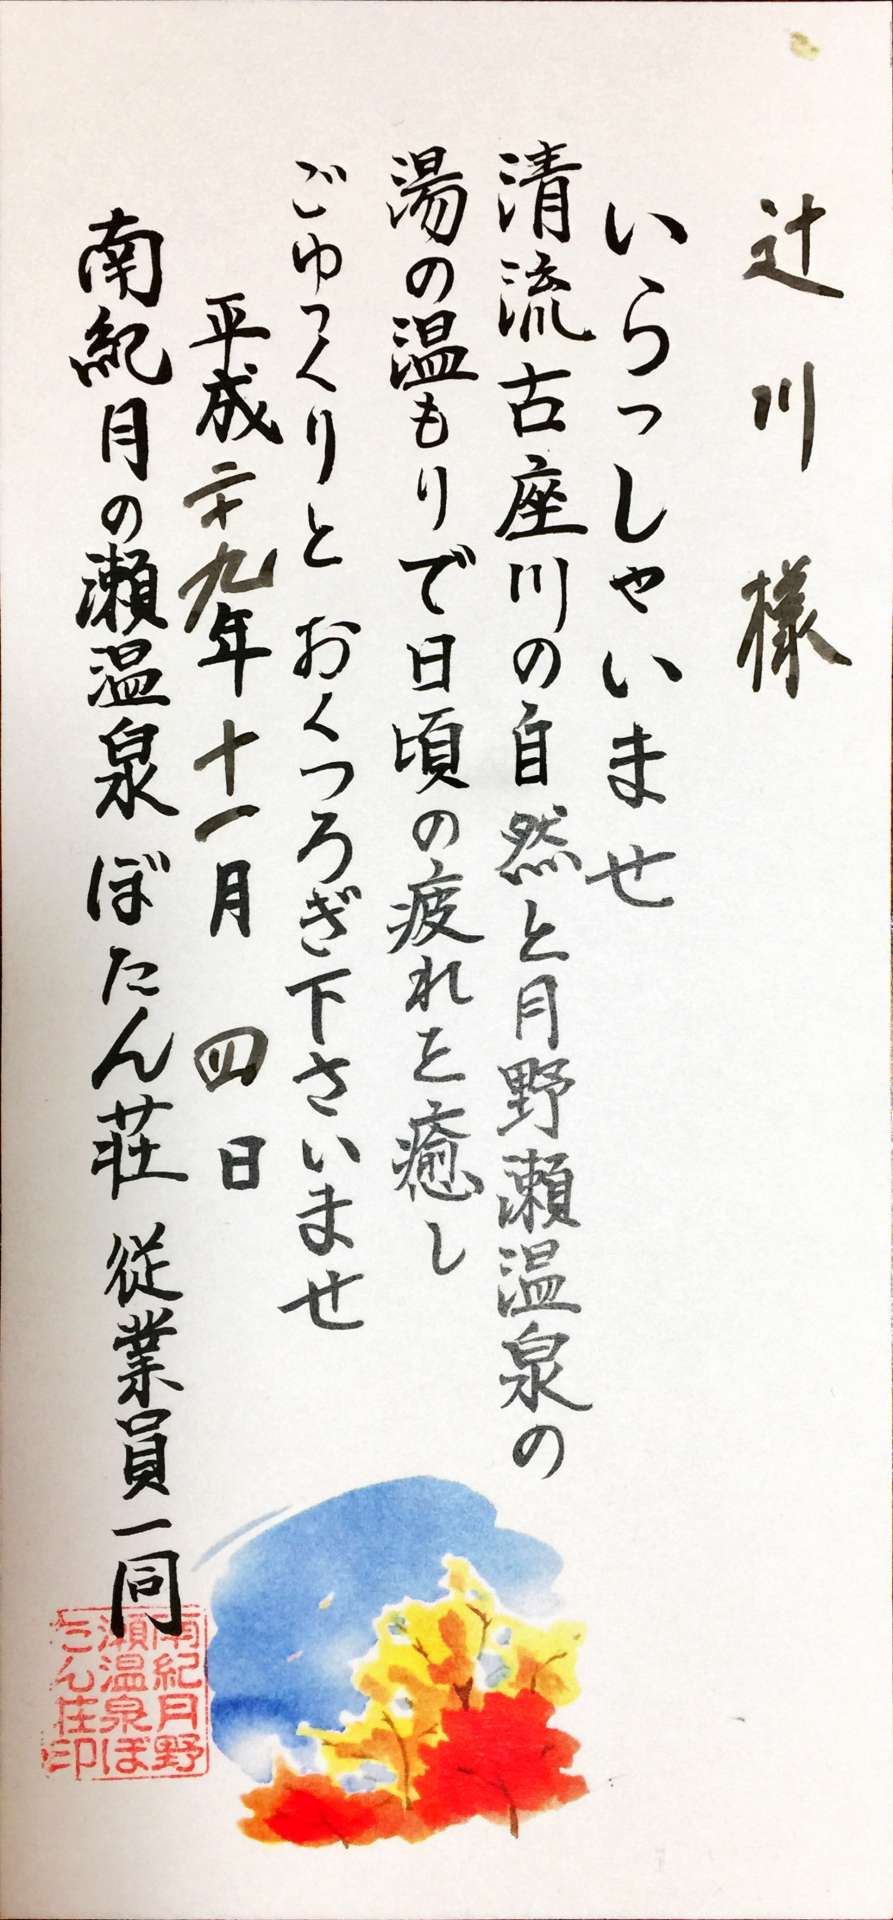 辻川様
いらっしゃいませ
清流古座川の自然と月野瀬温泉の
湯の温もりで日頃の疲れを癒し
ごゆっくりと おくつろぎ下さいませ
平成二十九年十一月 四日
南紀月の瀬温泉 ぼたん荘 従業員一同
南紀月野
瀬温泉ぼ
たん荘印